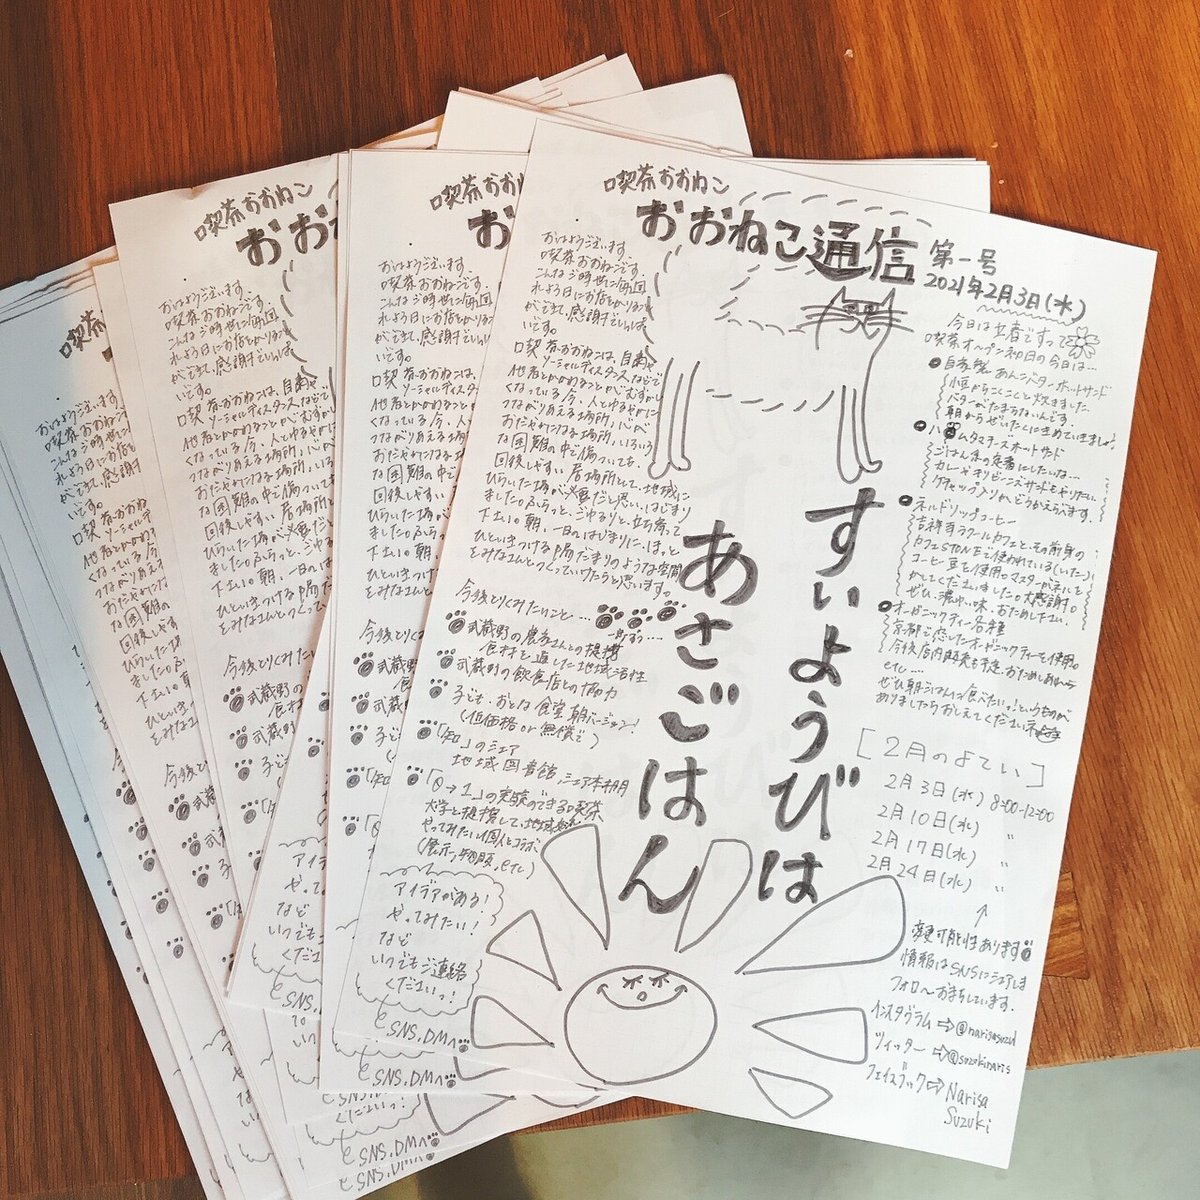 喫茶おおねこ
おおねこ通信 第一号
2021年2月3日(水)
おはようございます。
喫茶おおねこです。
こんなご時世に毎回
れよう日にお店をかりるこ
ができて、感謝でいっぱ
いです。
喫茶おおねこは、自粛や
ソーシャルディスタンスなどで
他者とかかわることがむずかし
くなっている今、人とゆるやかに
つながりあえる場所、心が
おだやかになる場所、いろいろ
な困難の中で傷ついても、
回復しやすい居場所として、地域に
ひらいた場が必要だと思い、はじめ
ました。ふらっと、ごゆるりと、立ち寄って
下さい。朝、一日のはじまりに、ほっと
ひといきつける陽だまりのような空間
をみなさんとつくっていけたらと思います。
今後とりくみたいこと…
一歩ずつ…
武蔵野の農家さんとの提携
食材を通した地域活性
武蔵野の飲食店との協力
子ども・おとな食堂朝バージョン!
(低価格or無償で)
「知」のシェア
地域図書館、シェア本棚
「0→1」の実験のできる喫茶
大学と提携して地域
やってみたい個人とコラボ
(展示、物販、etc)
アイデアがある!
やってみたい!
など
いつでもご連絡
くださいっ!
SNS.DMへ
すいようびは
あさごはん
今日は立春ですって
喫茶オープン初日の今日は…
自家製 あんこバターホットサンド
豆からことこと炊きました
バターがたまらないんです。
朝からぜいたくにきめていきましょう
ハムタマチーズホットサンド
ごはん系の定番にしたいな…
カレーキャロビーンズサンドもやりたい。
ケチャップ入りかどうかえらべます。
ネルドリップコーヒー
吉祥寺ラクールカフェと、その前身の
カフェSTONEで使われている(いた)
コーヒー豆を使用。マスターがネルを
かしてくださいました。大感謝。
ぜひ、濃ゆい味、おためし下さい。
オーガニックティー各種
京都で恋したオーガニックティーを使用。
今後店内販売も予定。おためしあれ〜
etc....
ぜひ朝ごはんに食べたいっ!というものが
ありましたらおしえてくださいネ
[2月のよてい]
2月3日(水) 8:00-12:00
2月10日(水) 〃
2月17日(水) 〃
2月24日(水) 〃
変更可能性あります
情報はSNSにシェアしま
フォロ〜おまちしています。
インスタグラム⇨@narisasuzu
ツイッター⇨@suzukinaris
フェイスブック⇨Narisa
Suzuki